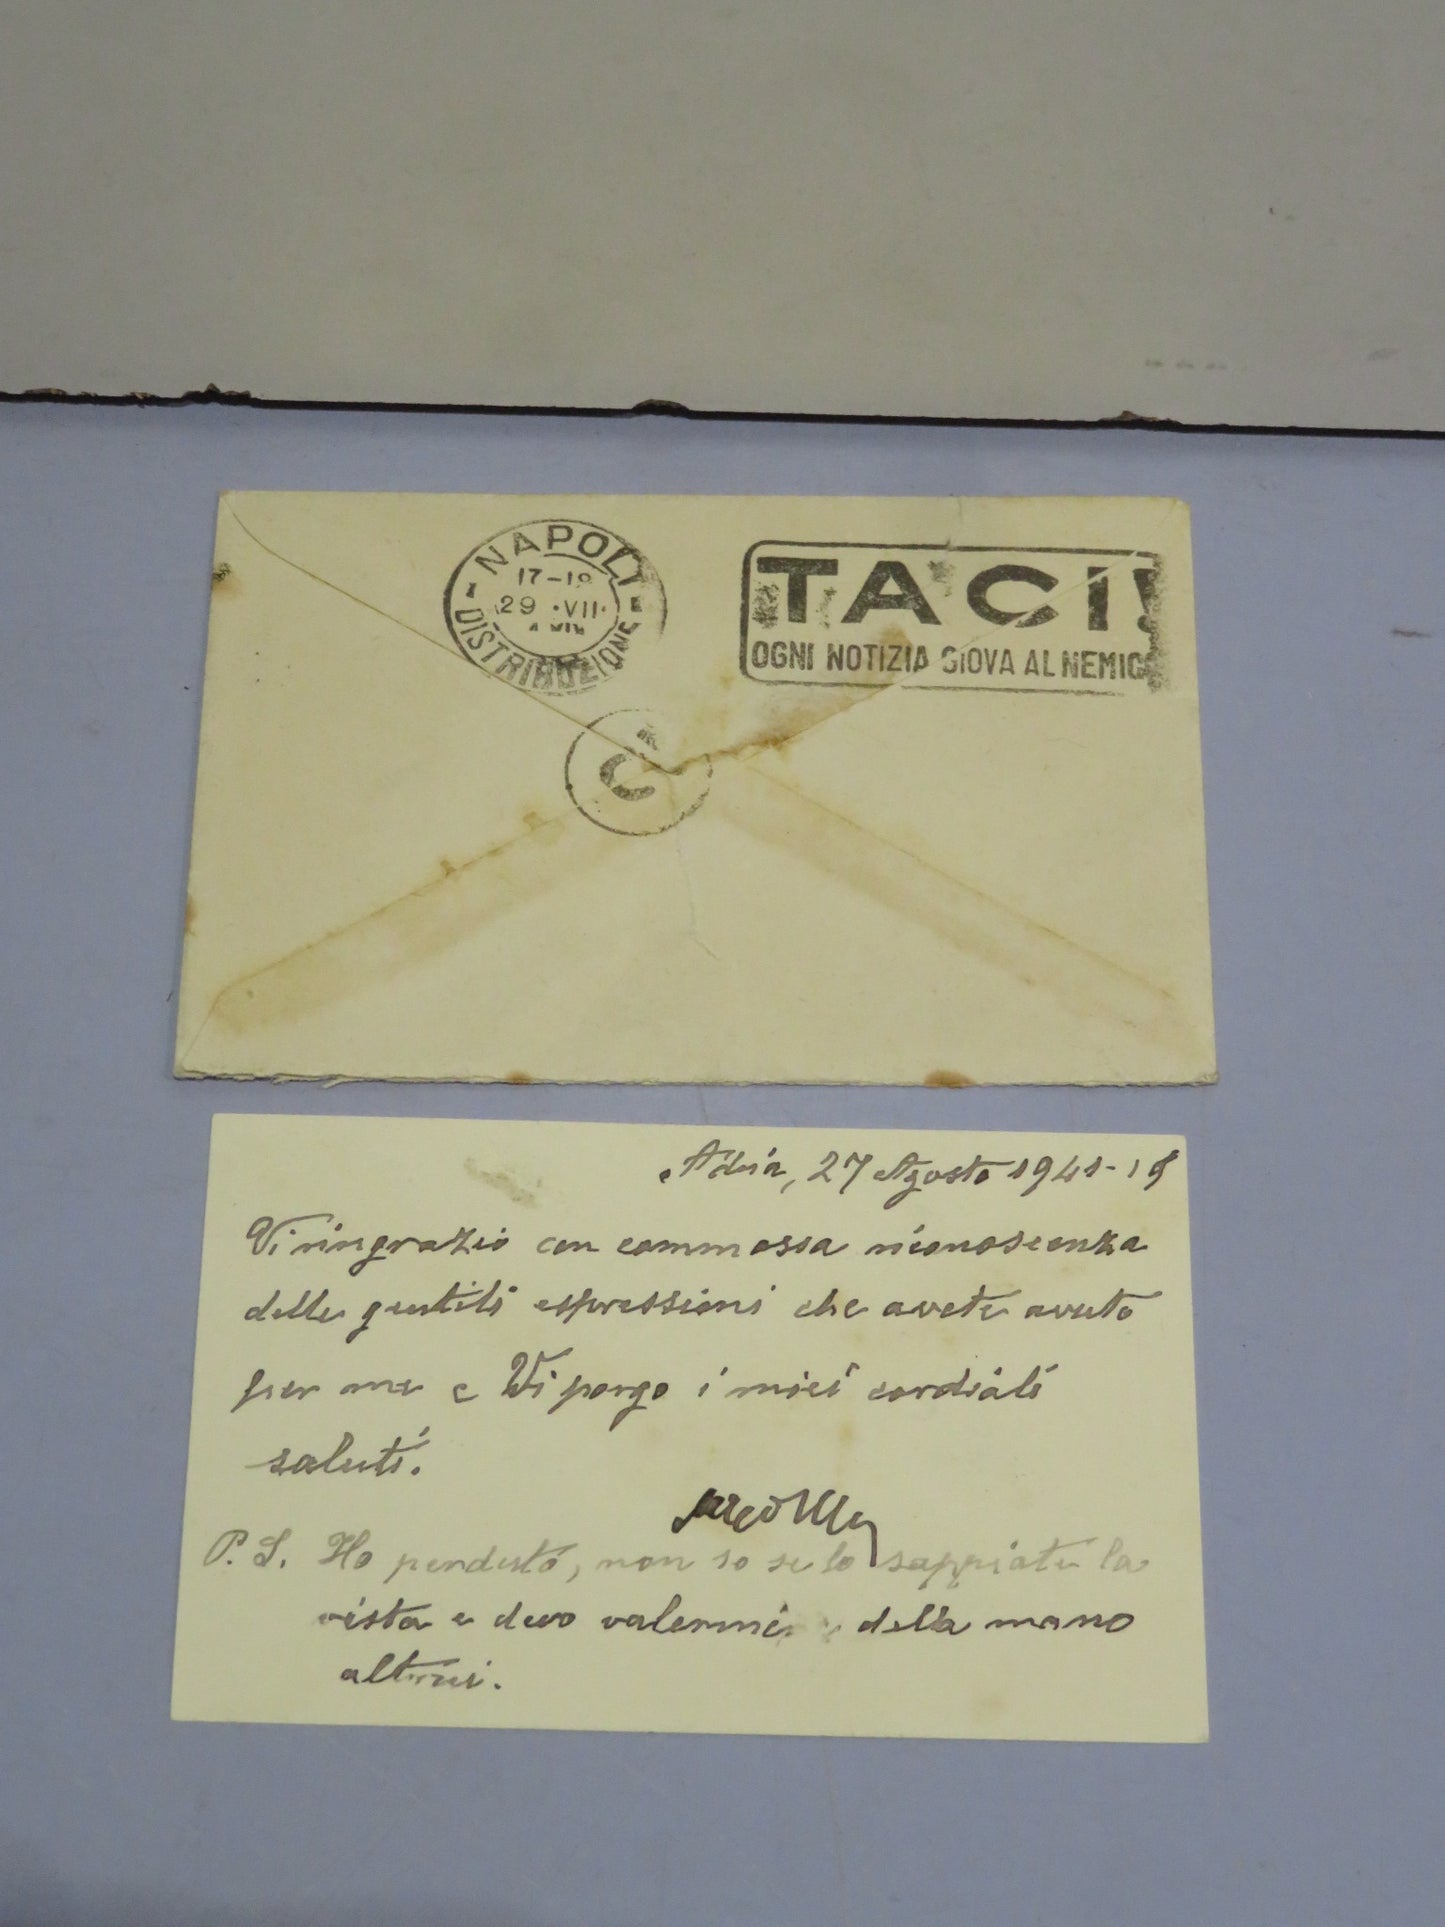 NAPOLI
17-18
29 · VII ·
DISTRIBUZIONE
TACI!
OGNI NOTIZIA GIOVA AL NEMICO
C
Adria, 27 Agosto 1941-
Vi ringrazio con commossa riconoscenza
delle gentili espressioni che avete avuto
per me e Vi porgo i miei cordiali
saluti.
P. S. Ho perduto, non so se lo sappiate la
vista e devo valermi della mano
altrui.